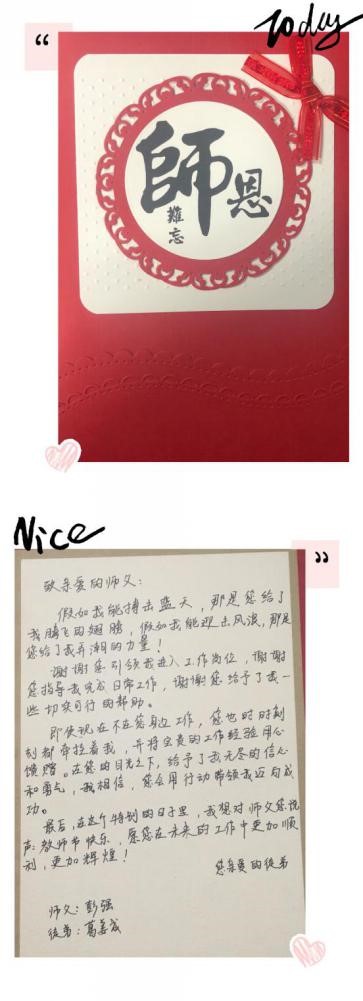 today
“
師恩
難忘
Nice
”
致亲爱的师父：
假如我能搏击蓝天，那是您给了
我腾飞的翅膀，假如我能迎击风浪，那是
您给了我弄潮的力量！
谢谢您引领我进入工作岗位，谢谢
您指导我完成日常工作，谢谢您给予了我一
些切实可行的帮助。
即使现在不在您身边工作，您也时时刻
刻都牵挂着我，并将宝贵的工作经验用心
馈赠。在您的目光之下，给予了我无尽的信心
和勇气，我相信，您会用行动带领我迈向成
功。
最后，在这个特别的日子里，我想对师父您说
声：教师节快乐，愿您在未来的工作中更加顺
利，更加辉煌！
您亲爱的徒弟
师父：彭强
徒弟：葛姜